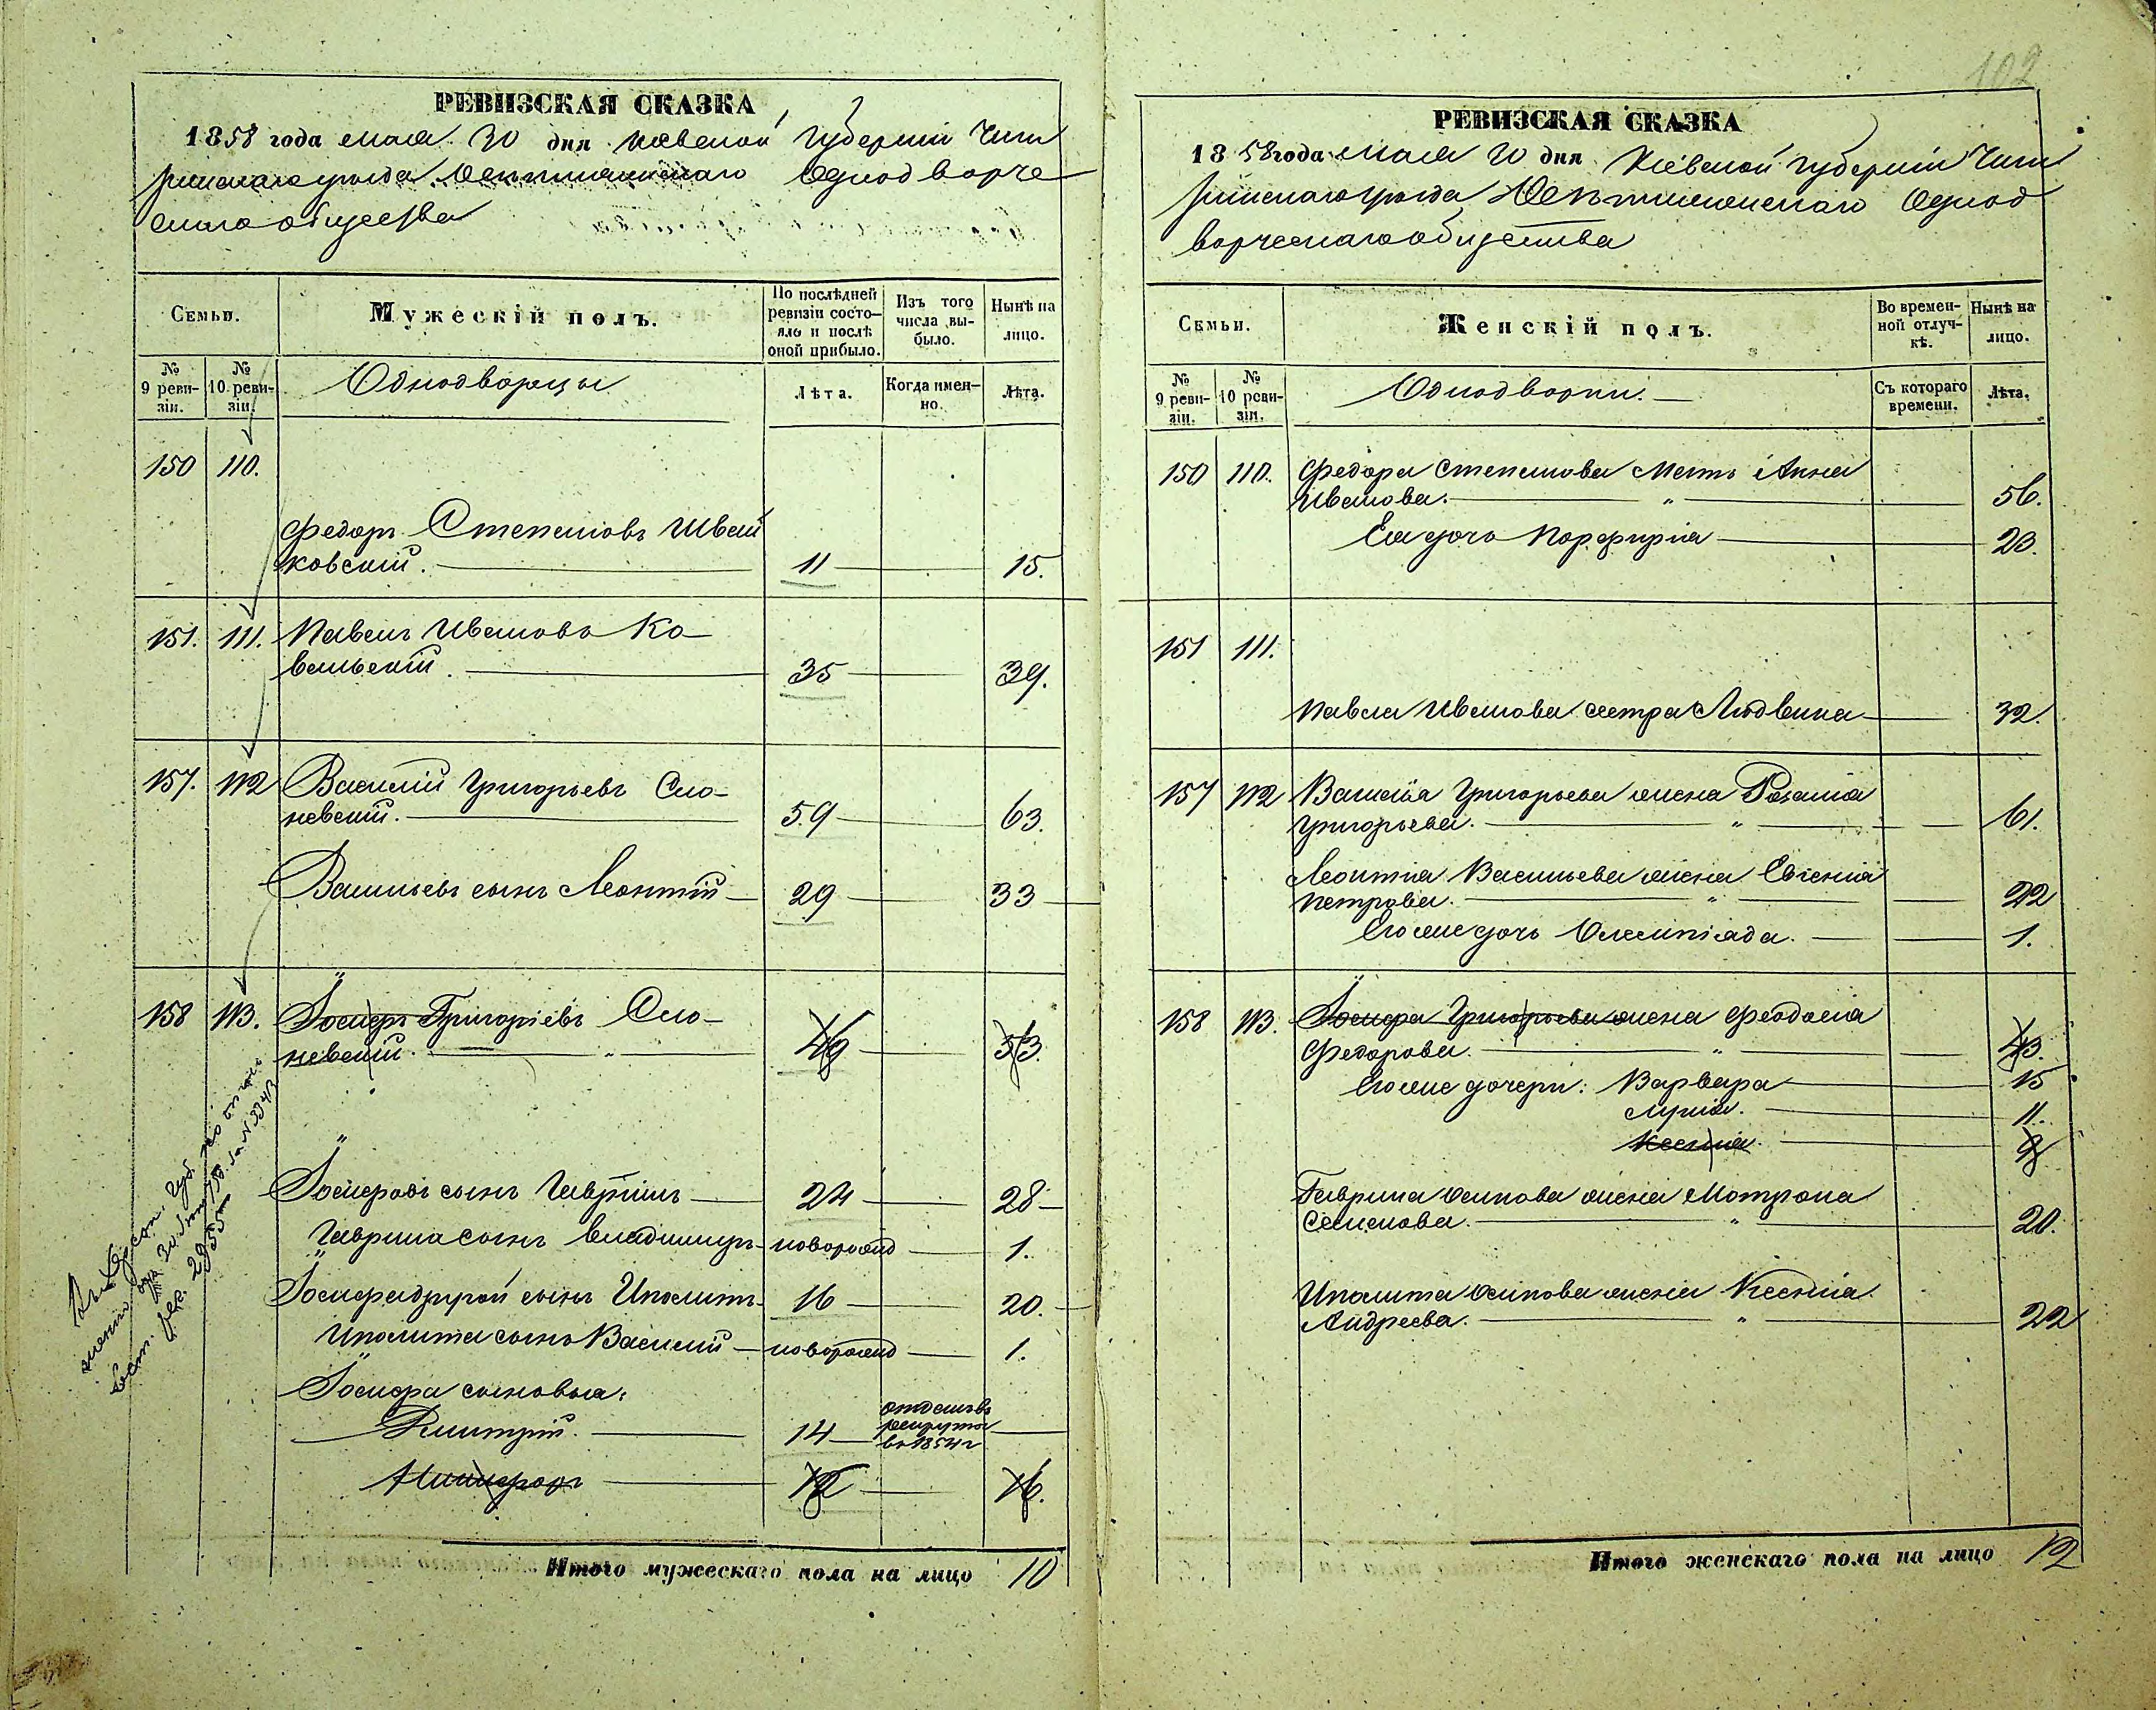 РЕВИЗСКАЯ СКАЗКА
1858 года мая 30 дня Кіевской Губерніи Чиги
ринскаго уѣзда Одноδворче
скаго общества
Семьи.
Мужескій полъ.
По послѣдней ревизіи состо-
яло и послѣ оной прибыло.
Изъ того числа вы-
было.
Нынѣ на лицо.
№ 9 реви-
зіи.
№ 10 реви-
зіи.
Однодворцы
Лѣта.
Когда имен-
но.
Лѣта.
150 110.
Федоръ Степановъ Швей
ковскій. 11 15.
151. 111. Павелъ Ивановъ Ко-
вальскій. 35 39.
157. 112 Василій Григорьевъ Сло-
невскій. 59 63.
Васильевъ сынъ Леонтій 29 33
158 113. Іосифъ Григоріевъ Сло-
невскій. " 49 53.
Іосифовъ сынъ Гавріилъ 24 28
Гаврила сынъ Владиміръ новорожд 1.
Іосифа другой сынъ Иполитъ 16 20.
Иполита сынъ Василій новорожд 1.
Іосифа сыновья:
Дмитрій. 14 отданъ въ
рекруты
въ 1854 г
Никифоръ 12 16.
Итого мужескаго пола на лицо 10
102
РЕВИЗСКАЯ СКАЗКА
1858 года мая 30 дня Кіевской Губерніи Чиги
ринскаго уѣзда Однод
ворческаго общества
Семьи.
Женскій полъ.
Во времен-
ной отлуч-
кѣ.
Нынѣ на лицо.
№ 9 реви-
зіи.
№ 10 реви-
зіи.
Однодворки.
Съ котораго времени.
Лѣта.
150 110. Федора Степанова Мать Анна
Иванова. " 56.
Ея дочь Порфирія 23.
151 111.
Павла Иванова сестра Людвика 32.
157 112 Василія Григорьева жена Розалія
Григорьева. " 61.
Леонтія Васильева жена Евгенія
Петрова. " 22
Его же дочь Олимпіада. 1.
158 113. Іосифа Григорьева жена Феодосія
Федорова. " 43.
Его же дочери: Варвара 15
11.
Ксенія.
Гаврила Осипова жена Мотрона
Семенова. " 20.
Иполита Осипова жена Ксенія
Андреева. " 22
Итого женскаго пола на лицо 12